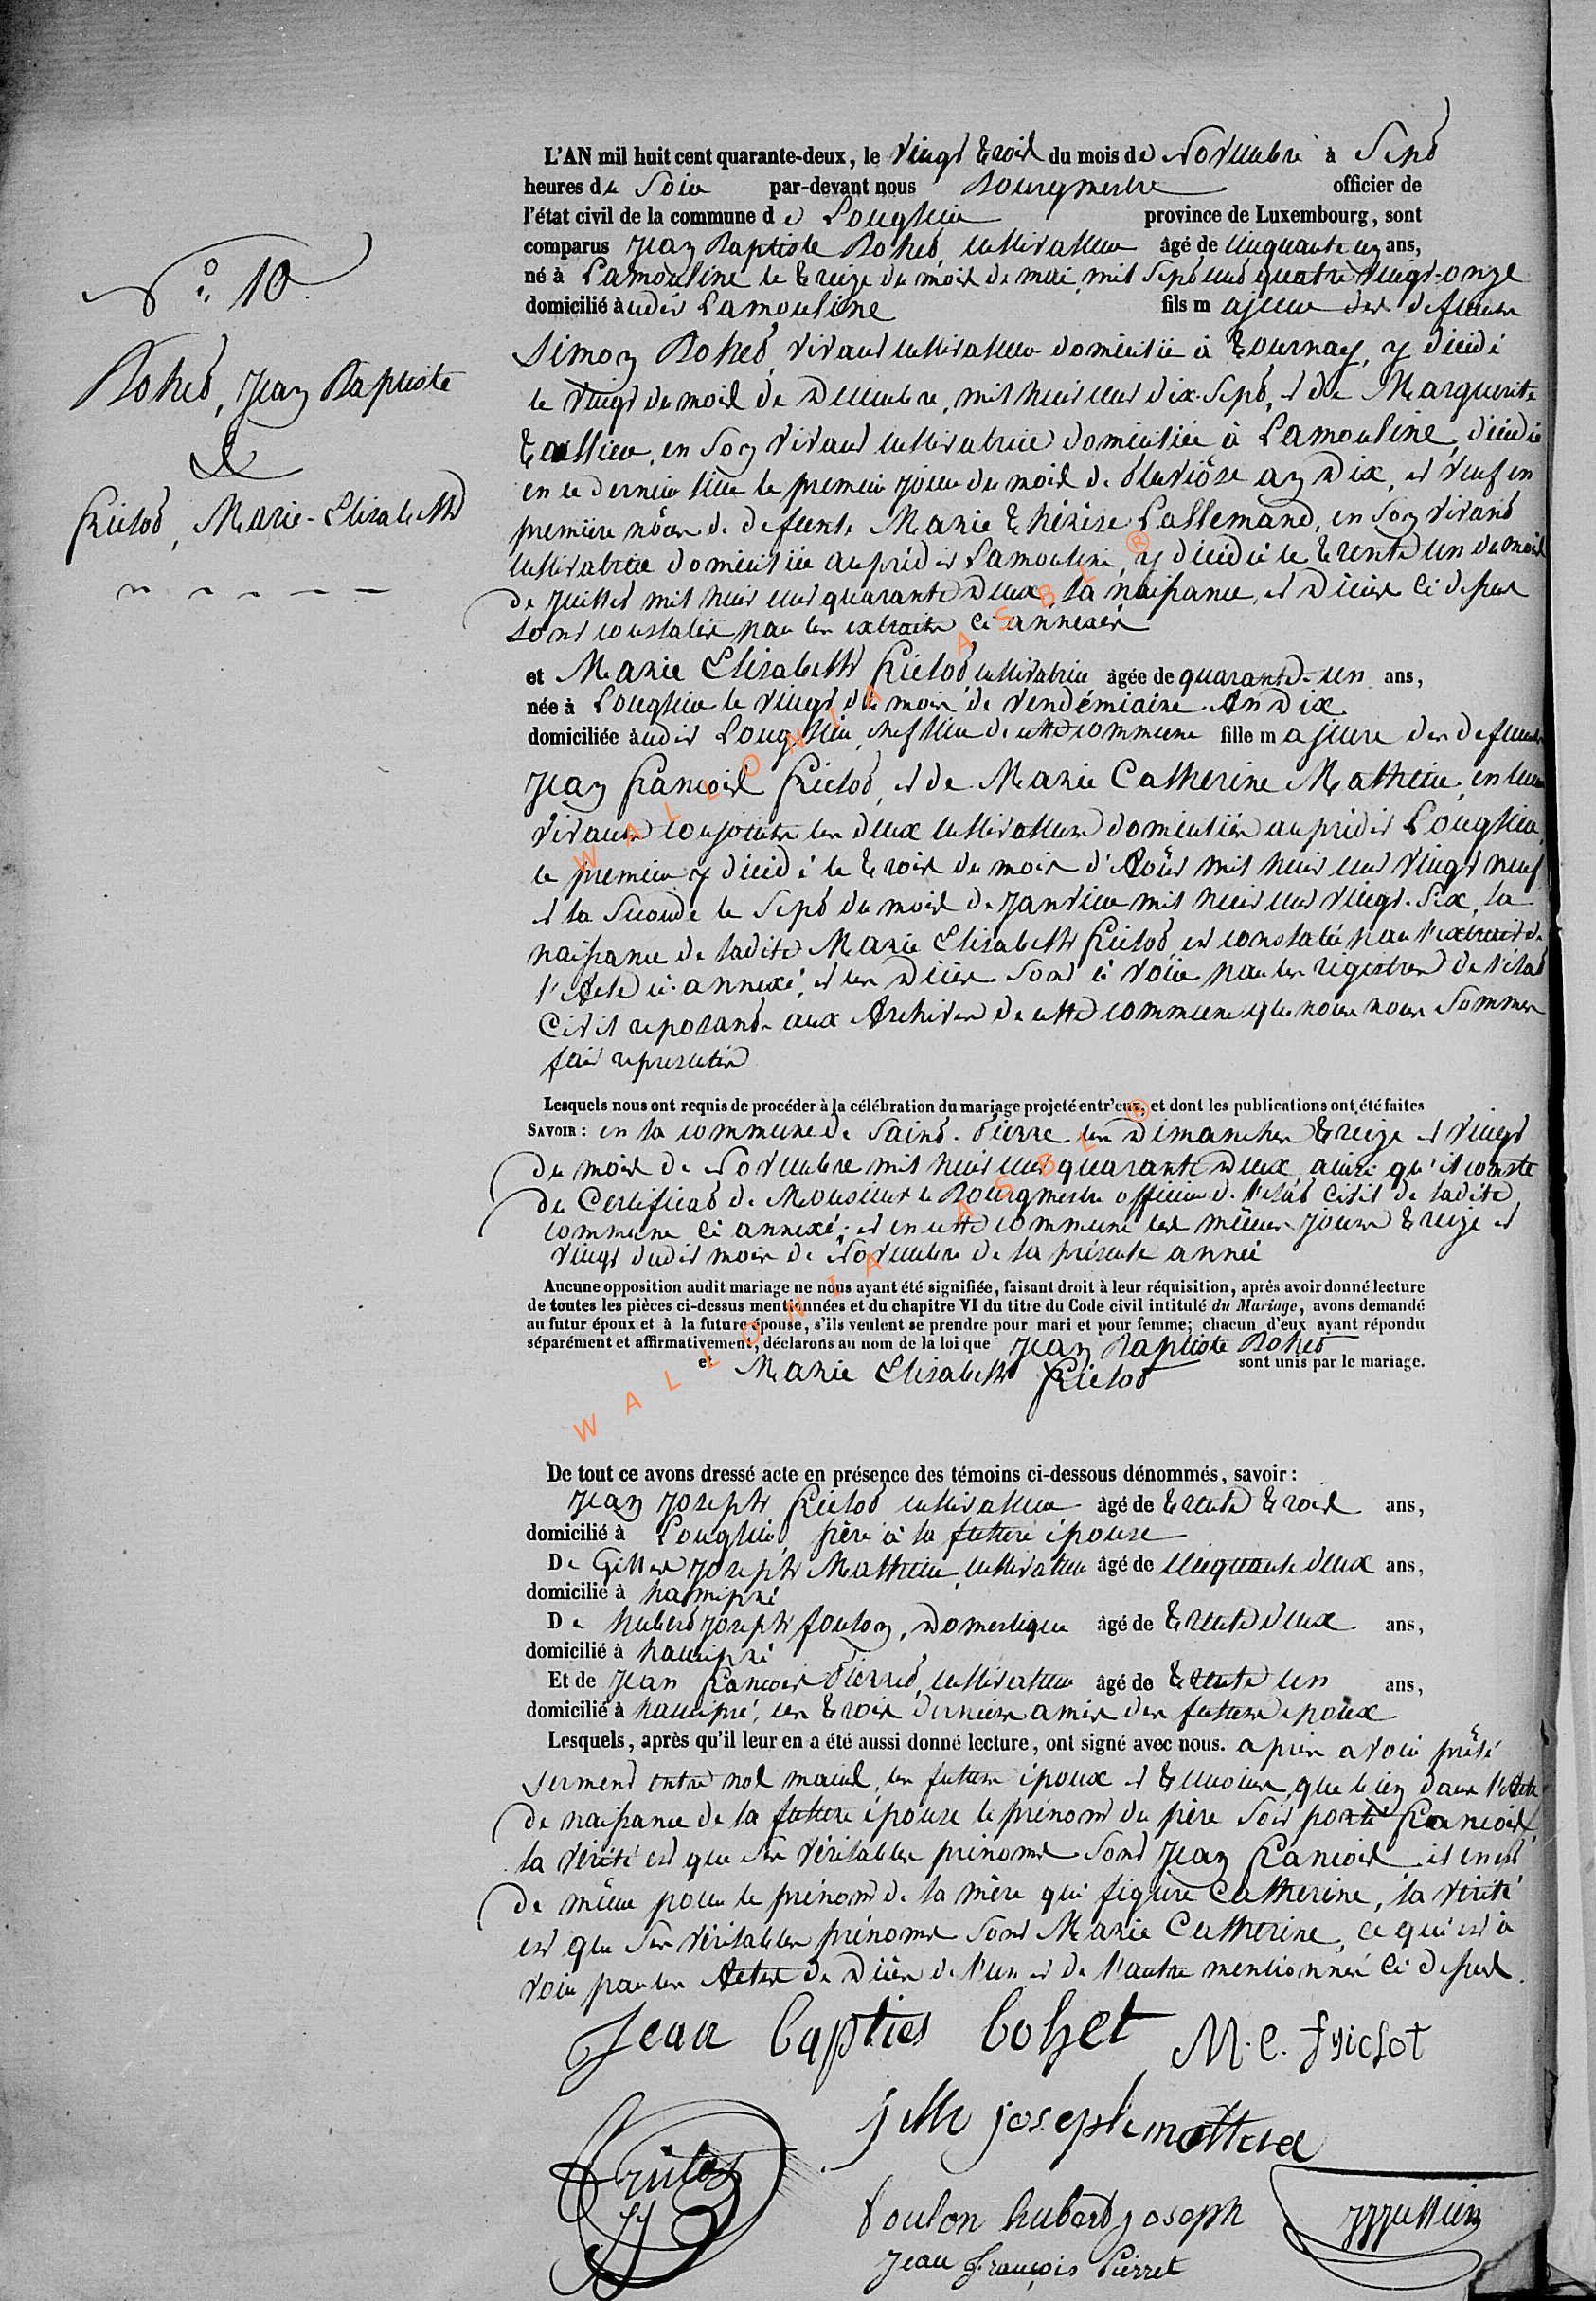 N° 10.
Bohet, Jean Baptiste
&
Frictot, Marie-Elisabeth
L'AN mil huit cent quarante-deux, le vingt trois du mois de Novembre à Sept
heures du Soir par-devant nous Bourgmestre officier de
l'état civil de la commune de Longlier province de Luxembourg, sont
comparus Jean Baptiste Bohet, cultivateur âgé de cinquante un ans,
né à Lamouline le treize du mois de mai, mil sept cent quatre vingt-onze
domicilié àudit Lamouline fils majeur des defunts
Simon Bohet, vivant cultivateur domicilié à Tournay, y décédé
le vingt du mois de Décembre, mil huit cent dix-sept, et de Marguerite
en son vivant cultivatrice domiciliée à Lamouline, décédée
en ce dernier lieu le premier jour du mois de Pluviôse an Dix, et veuf en
première nôces de defunte Marie Thérèse Lallemand, en son vivant
cultivatrice domiciliée au prédit Lamouline, y décédée le trente un du mois
de Juillet mil huit cent quarante Deux, sa naissance, et Décès ci dessus
sont constatés par les extraits ci annexés
et Marie Elisabeth Frictot, cultivatrice âgée de quarante-un ans,
née à Longlier le vingt du mois de vendémiaire An Dix
domiciliée àudit Longlier, chef lieu de cette commune fille majeure des defunts
Jean François Frictot, et de Marie Catherine Mathieu, en leur
vivant conjoints les deux cultivateurs domiciliés au prédit Longlier,
le premier y décédé le trois du mois d'Août mil huit cent vingt neuf
et la Seconde le Sept du mois de Janvier mil huit cent vingt-Six, la
naissance de ladite Marie Elisabeth Frictot, est constatée par l'extrait de
l'Acte ci-annexé, et les Décès sont à voir par les régistres de l'état
Civil reposant aux Archives de cette commune que nous nous sommes
fait représenter
Lesquels nous ont requis de procéder à la célébration du mariage projeté entr'eux, et dont les publications ont été faites
SAVOIR : en la commune de Saint-Pierre les Dimanches treize et vingt
du mois de Novembre mil huit cent quarante Deux ainsi qu'il conste
du Certificat de Monsieur le Bourgmestre officier de l'état Civil de ladite
commune ci annexé; et en cette commune les mêmes jours treize et
vingt dudit mois de Novembre de la présente année
Aucune opposition audit mariage ne nous ayant été signifiée, faisant droit à leur réquisition, après avoir donné lecture
de toutes les pièces ci-dessus mentionnées et du chapitre VI du titre du Code civil intitulé du Mariage, avons demandé
au futur époux et à la future épouse, s'ils veulent se prendre pour mari et pour femme; chacun d'eux ayant répondu
séparément et affirmativement, déclarons au nom de la loi que Jean Baptiste Bohet
et Marie Elisabeth Frictot sont unis par le mariage.
De tout ce avons dressé acte en présence des témoins ci-dessous dénommés, savoir :
Jean Joseph Frictot cultivateur âgé de trente trois ans,
domicilié à Longlier, frère à la future épouse
De Gilles Joseph Mathieu, cultivateur âgé de cinquante deux ans,
domicilié à hamipré
De hubert Joseph foulon, Domestique âgé de trente deux ans,
domicilié à hamipré
Et de Jean François Pierret, cultivateur âgé de trente un ans,
domicilié à hamipré, les trois derniers amis des futurs époux
Lesquels, après qu'il leur en a été aussi donné lecture, ont signé avec nous. après avoir prêté
serment entre nos mains, les futurs époux et témoins, que bien dans l'Acte
de naissance de la future épouse le prénom du père soit porté François,
la vérité est que ses véritables prénoms sont Jean François il en est
de même pour le prénom de la mère qui figure Catherine, la vérité
est que ses véritables prénoms sont Marie Catherine, ce qui est à
voir par les Actes de Décès de l'un et de l'autre mentionnés ci dessus.
Jean bapties bohet M. e. frictot
joseph
foulon hubert joseph
Jean françois Pierret
WALLONIA ASBL ®
WALLONIA ASBL ®